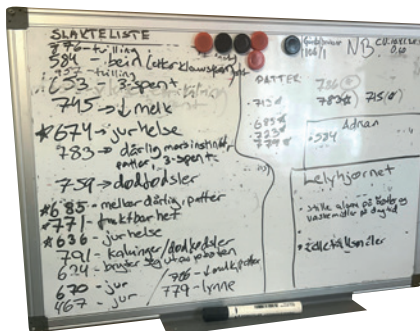 SLAKTELISTE
776-tvilling
584 - bein (etter klauvspenning)
757-tvilling
633 - 3-spent
745 → ↓ melk
*674 → jurhelse
783 → dårlig morsinstinkt
patter, 3-spent.
759 → dødfødsler
*685 - melker dårlig, patter
*771 - fruktbarhet
*636 - jurhelse
791 - kalvinger/dødfødsler
624 - bryter seg ut av roboten
670 - jur
467 - jur
766 - ↓ melk, patter
779 - lynne
NB
PATTER:
.745
.685
.723
.779
786
783
745
Adnan
.534
Lelyhjørnet
- stille alarm på
vaskemidler på dyktid
• Celletallsmåler